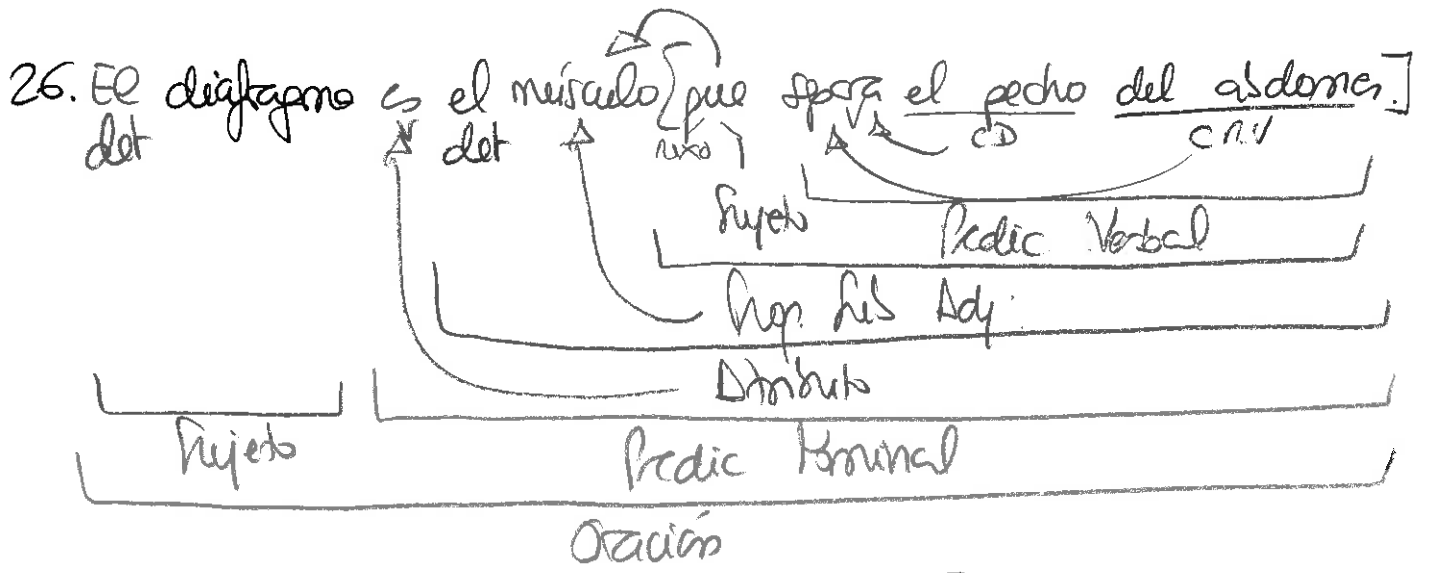 26. El diafragma es el músculo [que separa el pecho del abdomen.]
det V det nexo V CD C.R.V
Sujeto Predic Verbal
Prop. Sub Adj.
Atributo
Sujeto Predic Nominal
Oración